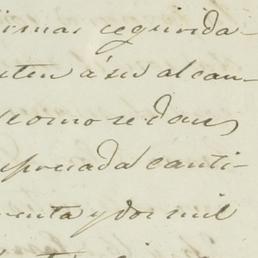 firmas segurida-
siten á su alcan-
como se dan
espresada canti-
enta y dos mil